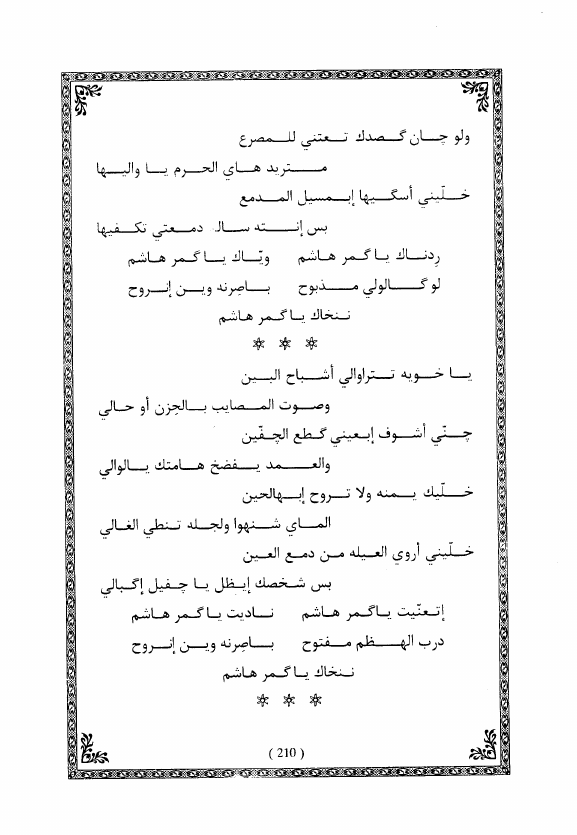 ولو چان گصدك تعتني للمصرع
متريد هاي الحرم يا واليها
خلّيني أسگيها إبمسيل المدمع
بس إنته سال دمعتي تكفيها
ردناك يا گمر هاشم ويّاك يا گمر هاشم
لو گالولي مذبوح باصرنه وين إنروح
ننخاك يا گمر هاشم
* * *
يا خويه تتراوالي أشباح البين
وصوت المصايب بالحزن أو حالي
چنّي أشوف إبعيني گطع الچفّين
والعمد يفضخ هامتك يالوالي
خلّيك يمنه ولا تروح إبهالحين
الماي شنهوا ولجله تنطي الغالي
خلّيني أروي العيله من دمع العين
بس شخصك إيظل يا چفيل إگبالي
إتعنّيت ياگمر هاشم ناديت يا گمر هاشم
درب الهظم مفتوح باصرنه وين إنروح
ننخاك يا گمر هاشم
* * *
( 210 )